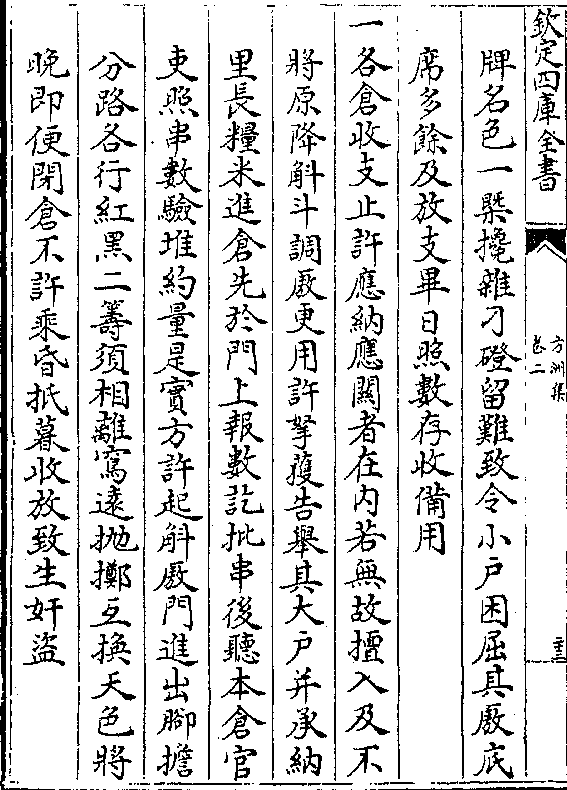 欽定四庫全書
方洲集
卷二
牌名色一槩攙雜刁磴留難致令小戸困屈其厫底
席多餘及放支畢日照數存收備用
一各倉收支止許應納應關者在内若無故擅入及不
將原降斛斗調厫更用許拏獲告舉其大戸并承納
里長糧米進倉先於門上報數訖批串後聽本倉官
吏照串數驗堆約量是實方許起斛厫門進出腳擔
分路各行紅黑二籌須相離窵遠抛擲互換天色將
晚即便閉倉不許乘昏抵暮收放致生奸盜